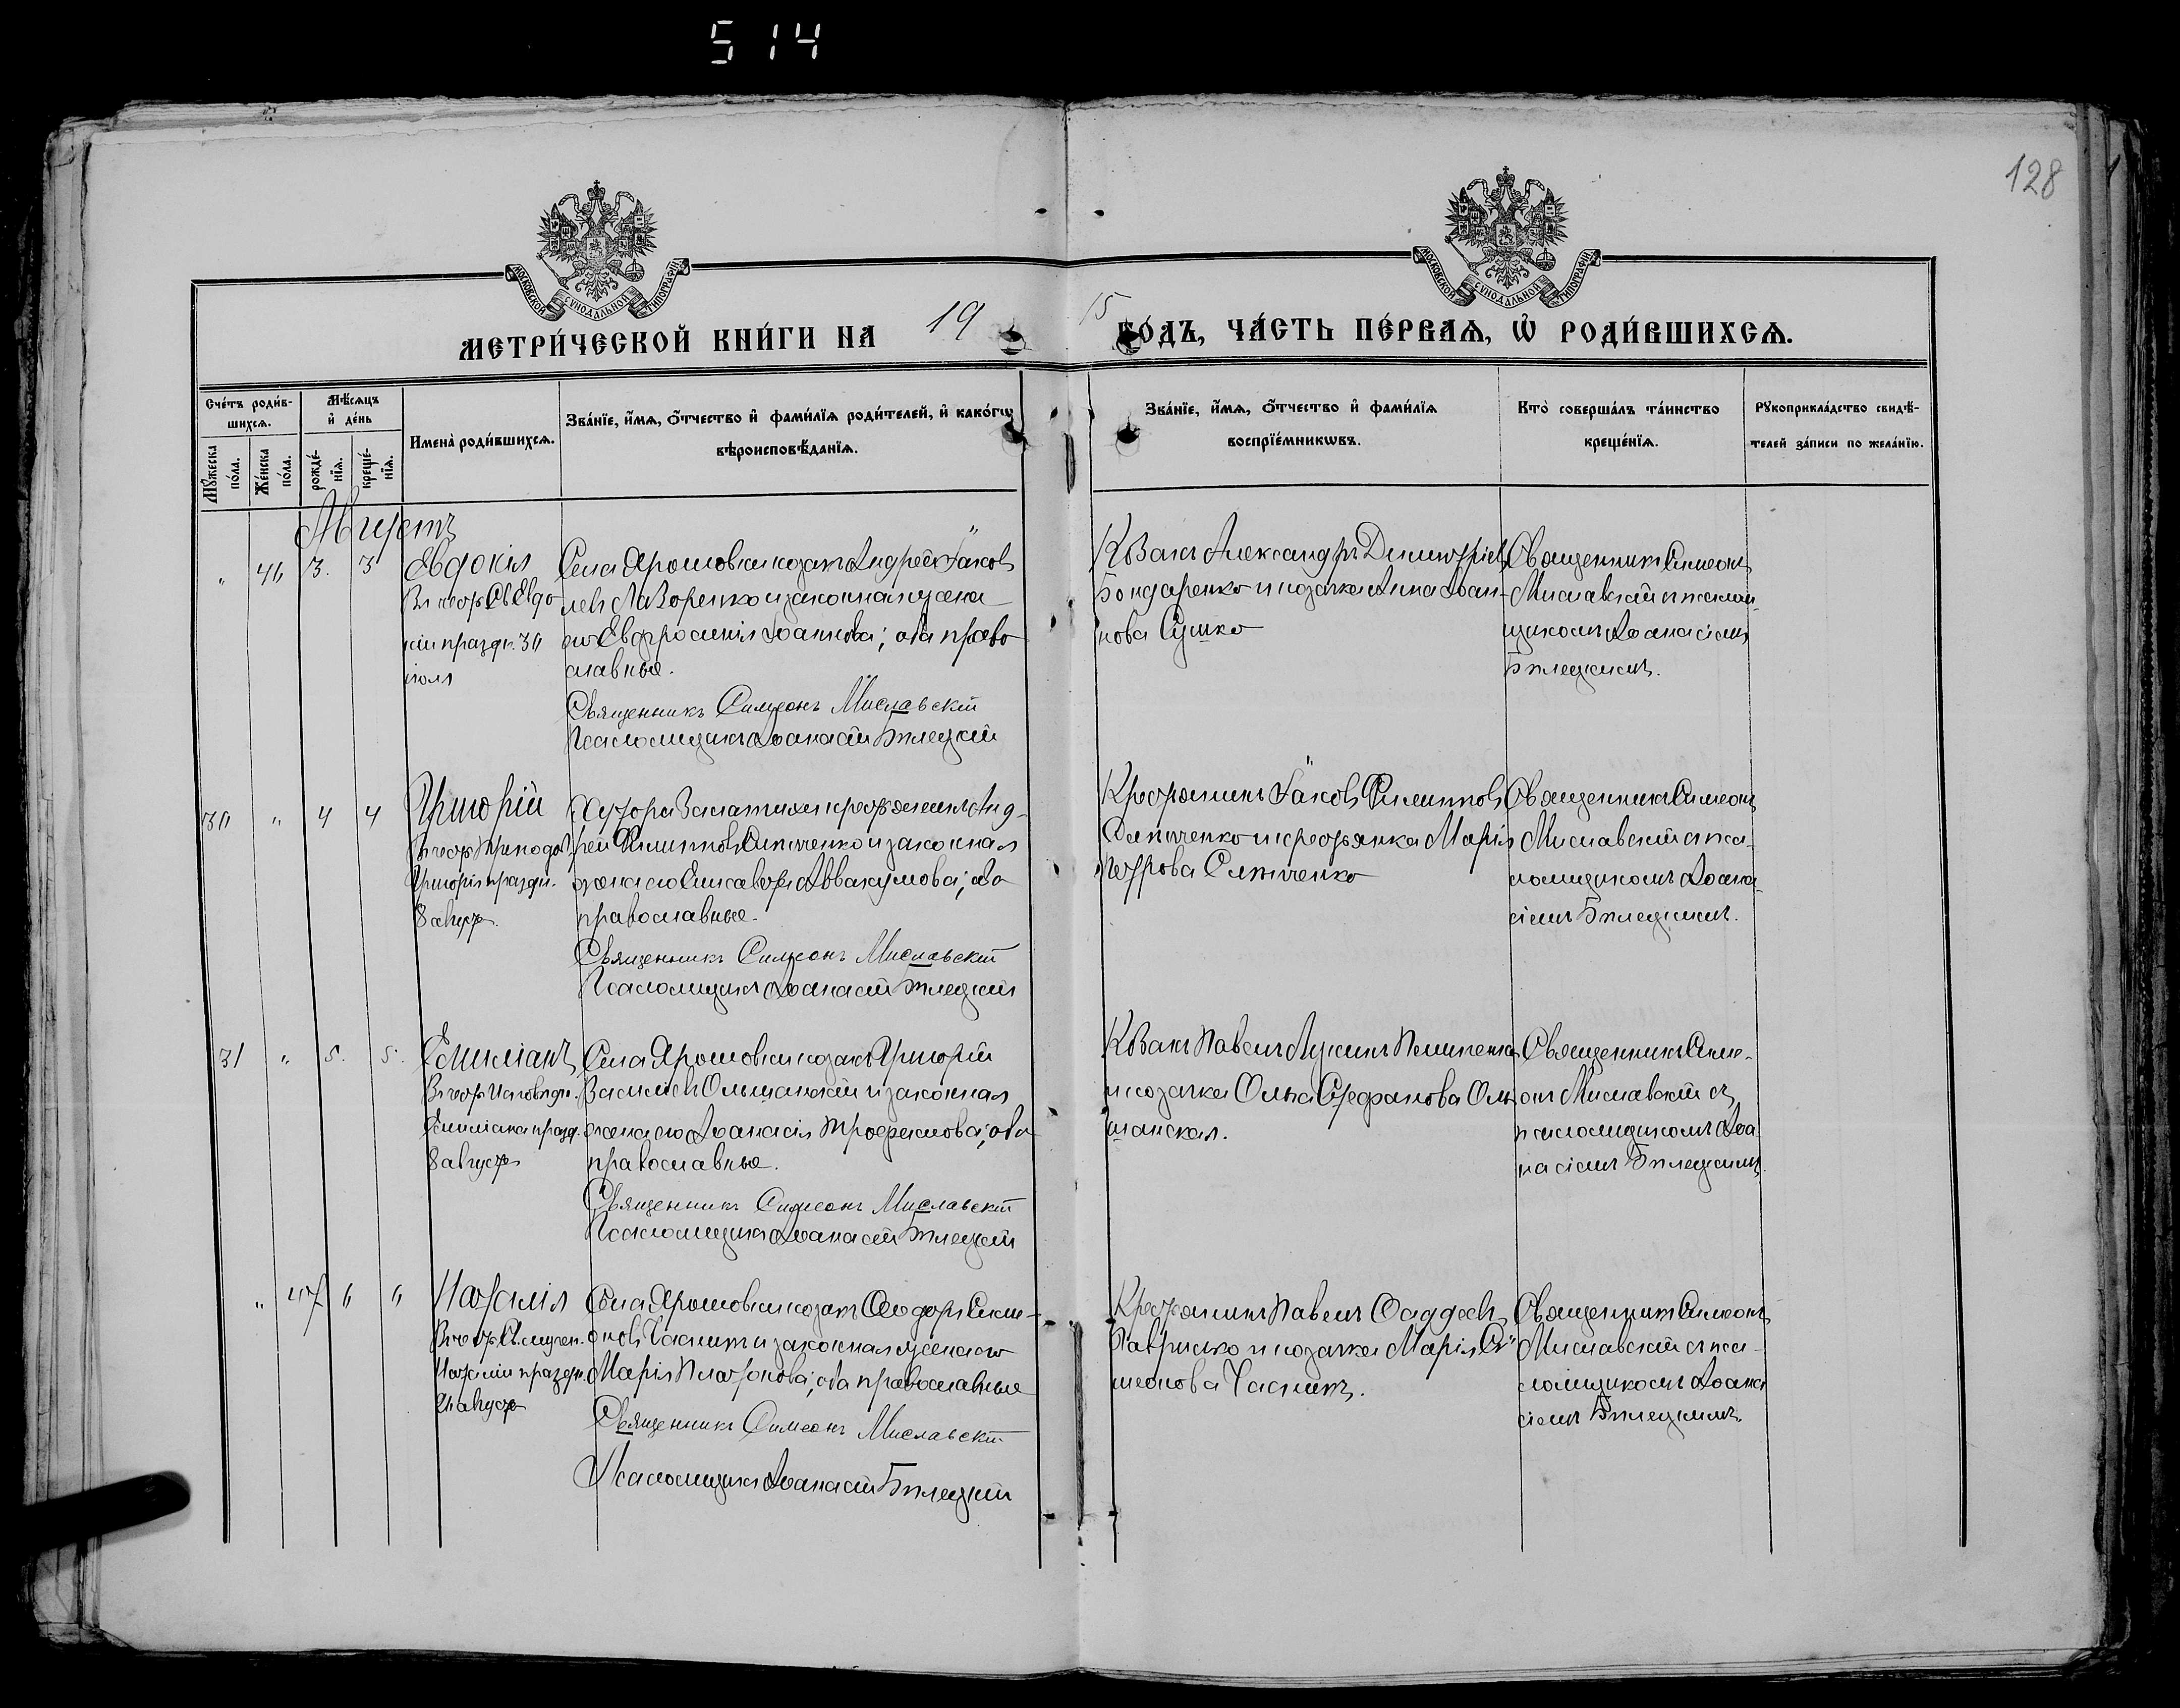 514
128
МОСКОВСКОЙ СУНОДАЛЬНОЙ ТИПОГРАФІИ
МОСКОВСКОЙ СУНОДАЛЬНОЙ ТИПОГРАФІИ
МЕТРИ́ЧЕСКОЙ КНИ́ГИ НА 19
15 ГО́ДЪ, ЧА́СТЬ ПЕ́РВАѦ, Ѡ҆ РОДИ́ВШИХСѦ.
Сче́тъ роди́в-
шихсѧ.
Мꙋ́жеска по́ла.
Же́нска по́ла.
Мѣ́сѧцъ
и҆ де́нь
рожде́-
нїѧ.
креще́-
нїѧ.
Имена̀ роди́вшихсѧ.
Зва́нїе, и҆́мѧ, ѻ҆́тчество и҆ фами́лїѧ роди́телей, и҆ како́гѡ
вѣроисповѣ́данїѧ.
Зва́нїе, и҆́мѧ, ѻ҆́тчество и҆ фами́лїѧ
воспрїе́мникѡвъ.
Кто̀ соверша́лъ та́инство
креще́нїѧ.
Рꙋкоприкла́дство свидѣ́-
телей за́писи по жела́нїю.
Августъ
" 46 3. 3
Евдокія
Въ честь Св Евдо
кіи праздн. 30
іюля
Села Ярошовки козакъ Андрей Іаков
левъ Лазоренко и законная жена
его Евфросинія Іоаннова; оба право
славные.
Священникъ Симеонъ Миславскій
Псаломщикъ Аѳанасій Бѣлецкій
Козакъ Александръ Димитріевъ
Бондаренко и козачка Анна Іоан-
нова Сушко
Священникъ Симеонъ
Миславскій с псалом
щикомъ Аѳанасіемъ
Бѣлецкимъ.
30 " 4 4
Григорій
Въ честь Преподоб.
Григорія праздн.
8 августа.
Хутора крестьянинъ Анд-
рей Филипповъ и законная
жена его Елисавета Аввакумова; оба
православные.
Священникъ Симеонъ Миславскій
Псаломщикъ Аѳанасій Бѣлецкій
Крестьянинъ Іаковъ Филипповъ
и крестьянка Марія
Петрова
Священникъ Симеонъ
Миславскій с пса-
ломщикомъ Аѳана-
сіемъ Бѣлецкимъ.
31 " 5. 5.
Емиліанъ
Въ честь Исповѣдн.
Емиліана празд.
8 августа
Села Ярошовки козакъ Григорій
Василіевъ Ольшанскій и законная
жена его Аѳанасія Трофимова; оба
православные.
Священникъ Симеонъ Миславскій
Псаломщикъ Аѳанасій Бѣлецкій
Козакъ Павелъ Лукинъ Пилипенко
и козачка Ольга Стефанова Оль
шанская.
Священникъ Симе-
онъ Миславскій съ
псаломщикомъ Аѳа
насіемъ Бѣлецкимъ.
" 47 6 6
Наталія
Въ честь Св. мучен.
Наталіи праздн.
26 августа
Села Ярошовки козакъ Ѳеодоръ Симе-
оновъ Часникъ и законная жена его
Марія Платонова; оба православные
Священникъ Симеонъ Миславскій
Псаломщикъ Аѳанасій Бѣлецкій
Крестьянинъ Павелъ Ѳаддеевъ
Гавришко и козачка Марія Си
меонова Часникъ.
Священникъ Симеонъ
Миславскій с пса-
ломщикомъ Аѳана
сіемъ Бѣлецкимъ.